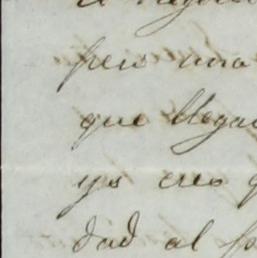 pero una
que llega
yo creo q
dad al